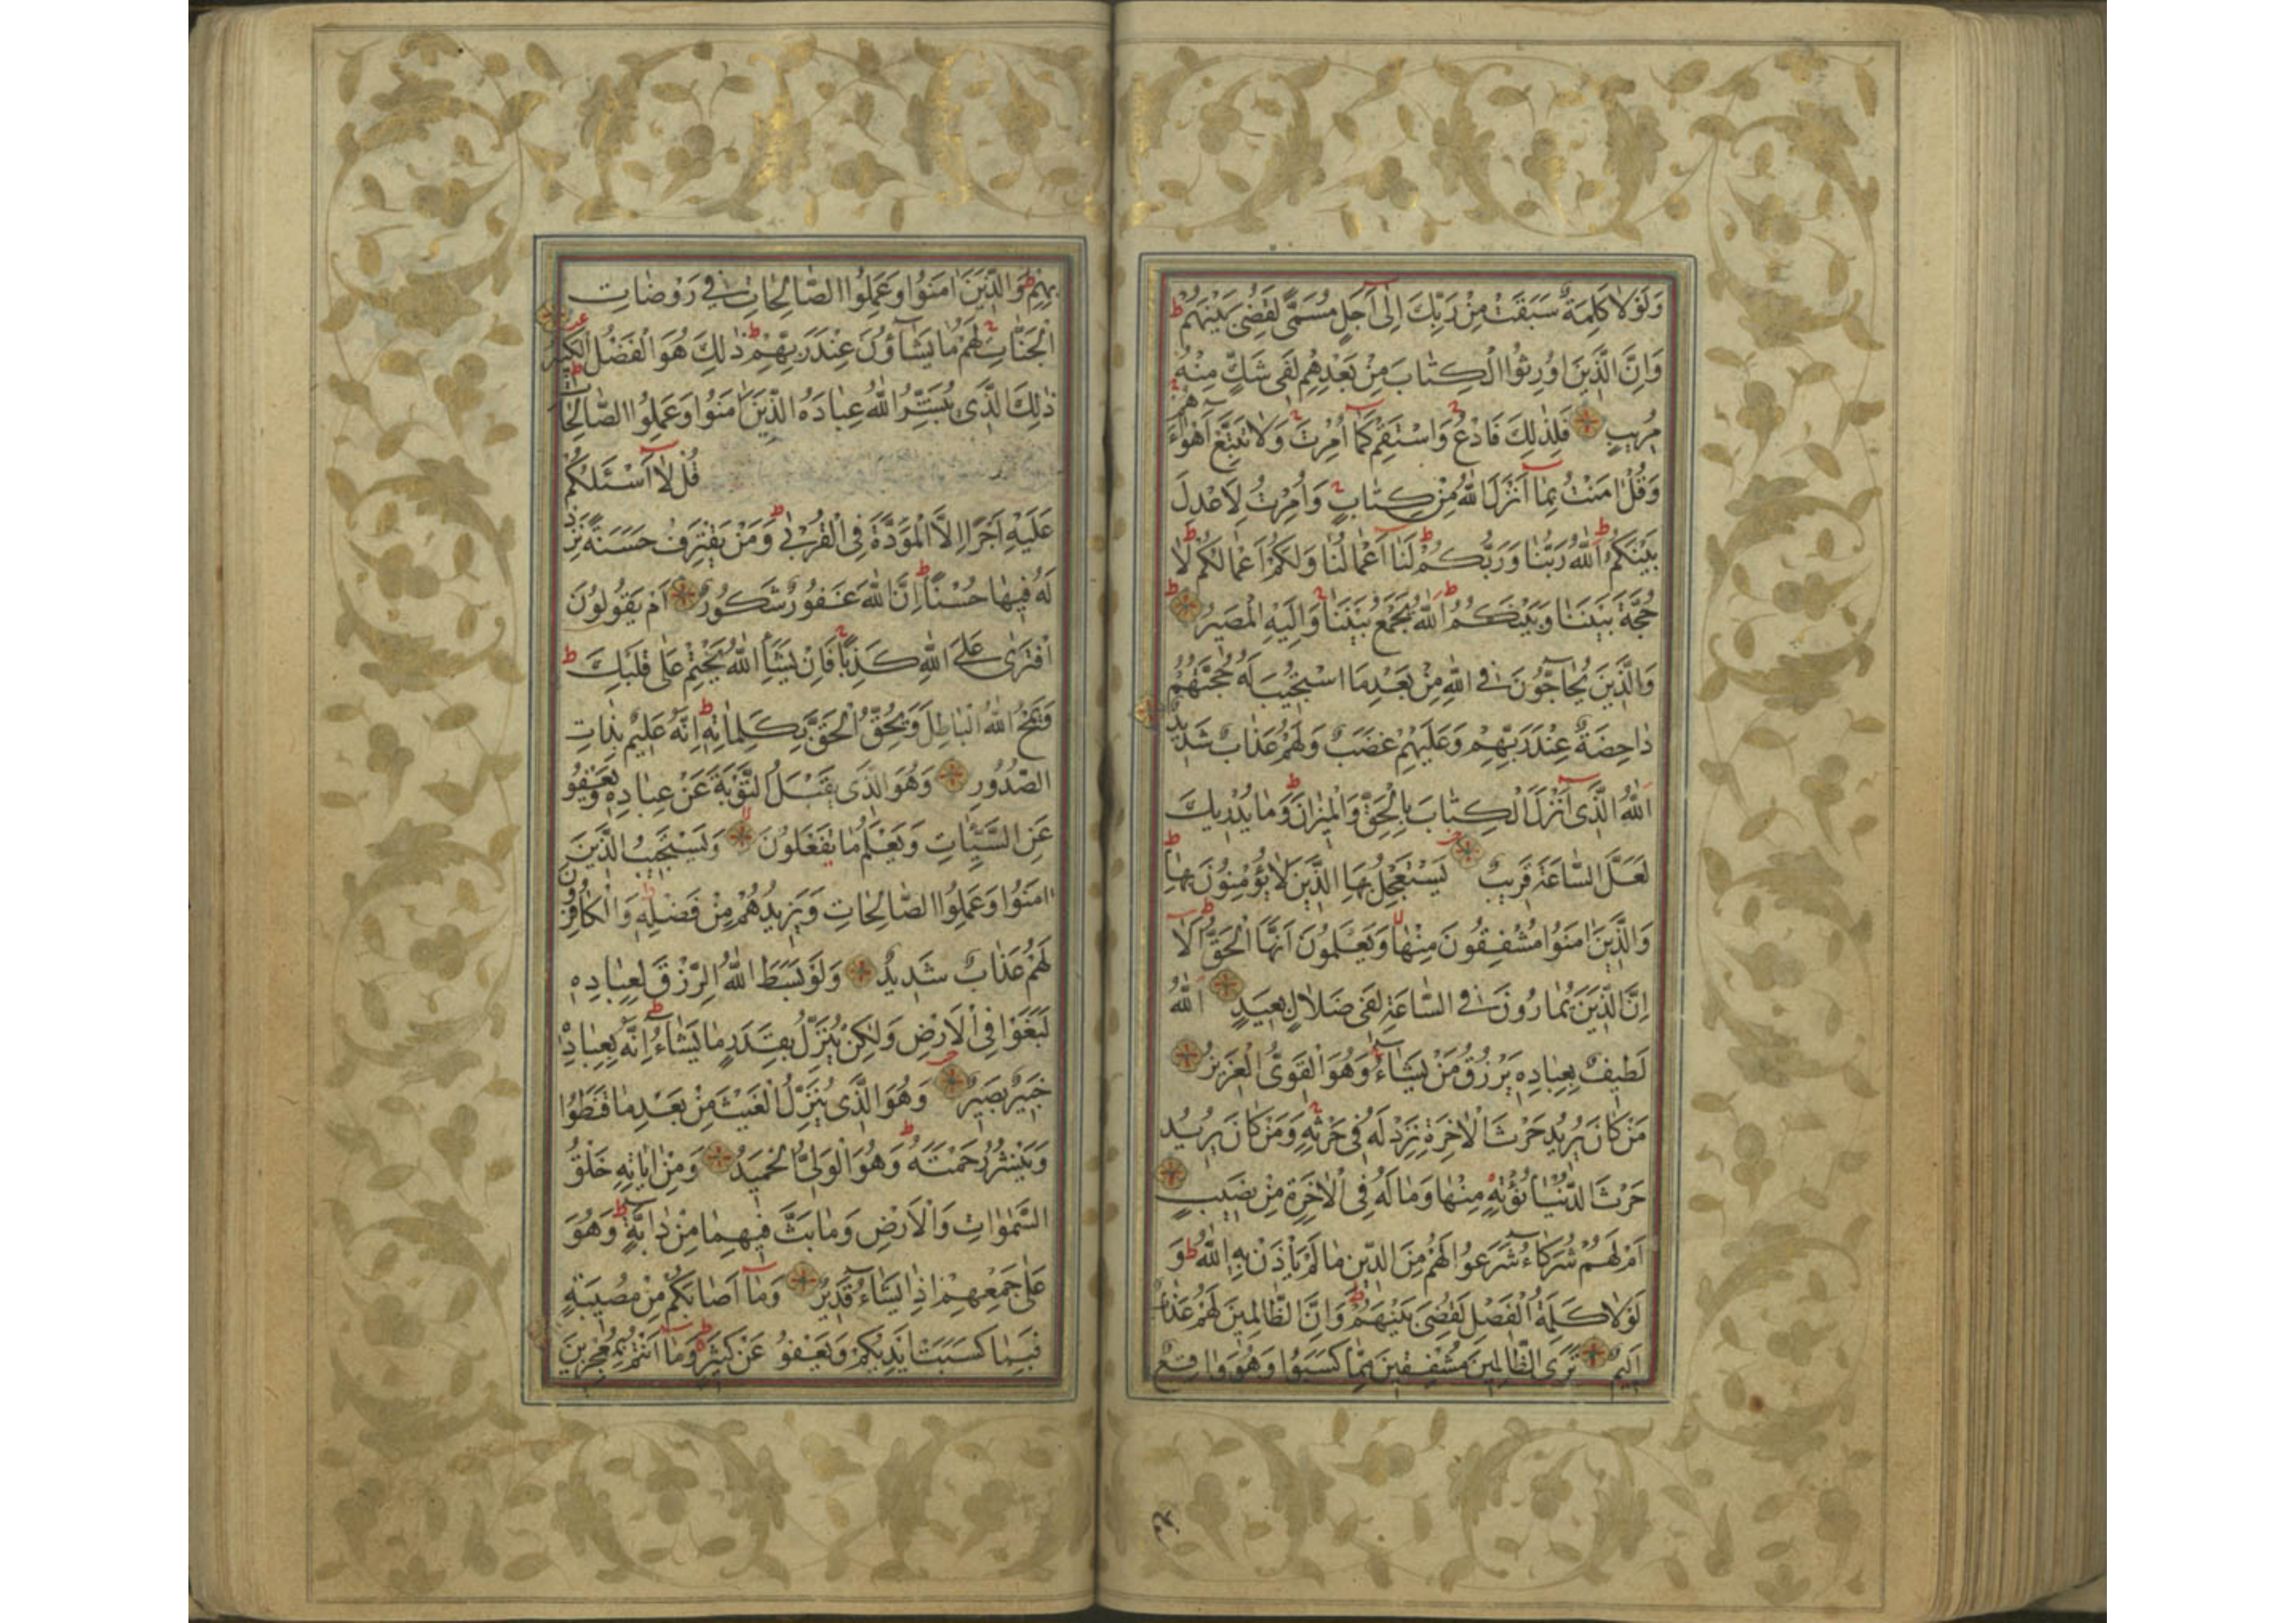 وَلَوْلَا كَلِمَةٌ سَبَقَتْ مِنْ رَبِّكَ اِلٰى اَجَلٍ مُسَمًّى لَقُضِىَ بَيْنَهُمْ ط
وَاِنَّ الَّذِينَ اُورِثُوا الْكِتَابَ مِنْ بَعْدِهِمْ لَفِى شَكٍّ مِنْهُ
مُرِيبٍ فَلِذٰلِكَ فَادْعُ وَاسْتَقِمْ كَمَا اُمِرْتَ وَلَا تَتَّبِعْ اَهْوَاءَهُمْ
وَقُلْ اٰمَنْتُ بِمَا اَنْزَلَ اللّٰهُ مِنْ كِتَابٍ وَاُمِرْتُ لِاَعْدِلَ
بَيْنَكُمُ ط اَللّٰهُ رَبُّنَا وَرَبُّكُمْ ط لَنَا اَعْمَالُنَا وَلَكُمْ اَعْمَالُكُمْ ط لَا
حُجَّةَ بَيْنَنَا وَبَيْنَكُمُ ط اَللّٰهُ يَجْمَعُ بَيْنَنَا وَاِلَيْهِ الْمَصِيرُ ط
وَالَّذِينَ يُحَاجُّونَ فِى اللّٰهِ مِنْ بَعْدِ مَا اسْتُجِيبَ لَهُ حُجَّتُهُمْ
دَاحِضَةٌ عِنْدَ رَبِّهِمْ وَعَلَيْهِمْ غَضَبٌ وَلَهُمْ عَذَابٌ شَدِيدٌ
اَللّٰهُ الَّذِى اَنْزَلَ الْكِتَابَ بِالْحَقِّ وَالْمِيزَانَ ط وَمَا يُدْرِيكَ
لَعَلَّ السَّاعَةَ قَرِيبٌ يَسْتَعْجِلُ بِهَا الَّذِينَ لَا يُؤْمِنُونَ بِهَا ط
وَالَّذِينَ اٰمَنُوا مُشْفِقُونَ مِنْهَا وَيَعْلَمُونَ اَنَّهَا الْحَقُّ ط اَلَا
اِنَّ الَّذِينَ يُمَارُونَ فِى السَّاعَةِ لَفِى ضَلَالٍ بَعِيدٍ اَللّٰهُ
لَطِيفٌ بِعِبَادِهِ يَرْزُقُ مَنْ يَشَاءُ وَهُوَ الْقَوِىُّ الْعَزِيزُ
مَنْ كَانَ يُرِيدُ حَرْثَ الْاٰخِرَةِ نَزِدْ لَهُ فِى حَرْثِهِ وَمَنْ كَانَ يُرِيدُ
حَرْثَ الدُّنْيَا نُؤْتِهِ مِنْهَا وَمَا لَهُ فِى الْاٰخِرَةِ مِنْ نَصِيبٍ
اَمْ لَهُمْ شُرَكَاءُ شَرَعُوا لَهُمْ مِنَ الدِّينِ مَا لَمْ يَاْذَنْ بِهِ اللّٰهُ ط وَ
لَوْلَا كَلِمَةُ الْفَصْلِ لَقُضِىَ بَيْنَهُمْ ط وَاِنَّ الظَّالِمِينَ لَهُمْ عَذَابٌ
اَلِيمٌ تَرَى الظَّالِمِينَ مُشْفِقِينَ مِمَّا كَسَبُوا وَهُوَ وَاقِعٌ
بِهِمْ ط وَالَّذِينَ اٰمَنُوا وَعَمِلُوا الصَّالِحَاتِ فِى رَوْضَاتِ
الْجَنَّاتِ لَهُمْ مَا يَشَاؤُنَ عِنْدَ رَبِّهِمْ ط ذٰلِكَ هُوَ الْفَضْلُ الْكَبِيرُ
ذٰلِكَ الَّذِى يُبَشِّرُ اللّٰهُ عِبَادَهُ الَّذِينَ اٰمَنُوا وَعَمِلُوا الصَّالِحَاتِ ط
قُلْ لَا اَسْئَلُكُمْ
عَلَيْهِ اَجْرًا اِلَّا الْمَوَدَّةَ فِى الْقُرْبٰى ط وَمَنْ يَقْتَرِفْ حَسَنَةً نَزِدْ
لَهُ فِيهَا حُسْنًا ط اِنَّ اللّٰهَ غَفُورٌ شَكُورٌ اَمْ يَقُولُونَ
افْتَرٰى عَلَى اللّٰهِ كَذِبًا فَاِنْ يَشَاِ اللّٰهُ يَخْتِمْ عَلٰى قَلْبِكَ ط
وَيَمْحُ اللّٰهُ الْبَاطِلَ وَيُحِقُّ الْحَقَّ بِكَلِمَاتِهِ ط اِنَّهُ عَلِيمٌ بِذَاتِ
الصُّدُورِ وَهُوَ الَّذِى يَقْبَلُ التَّوْبَةَ عَنْ عِبَادِهِ وَيَعْفُو
عَنِ السَّيِّئَاتِ وَيَعْلَمُ مَا يَفْعَلُونَ وَيَسْتَجِيبُ الَّذِينَ
اٰمَنُوا وَعَمِلُوا الصَّالِحَاتِ وَيَزِيدُهُمْ مِنْ فَضْلِهِ ط وَالْكَافِرُونَ
لَهُمْ عَذَابٌ شَدِيدٌ وَلَوْ بَسَطَ اللّٰهُ الرِّزْقَ لِعِبَادِهِ
لَبَغَوْا فِى الْاَرْضِ وَلٰكِنْ يُنَزِّلُ بِقَدَرٍ مَا يَشَاءُ ط اِنَّهُ بِعِبَادِهِ
خَبِيرٌ بَصِيرٌ وَهُوَ الَّذِى يُنَزِّلُ الْغَيْثَ مِنْ بَعْدِ مَا قَنَطُوا
وَيَنْشُرُ رَحْمَتَهُ ط وَهُوَ الْوَلِىُّ الْحَمِيدُ وَمِنْ اٰيَاتِهِ خَلْقُ
السَّمٰوَاتِ وَالْاَرْضِ وَمَا بَثَّ فِيهِمَا مِنْ دَابَّةٍ ط وَهُوَ
عَلٰى جَمْعِهِمْ اِذَا يَشَاءُ قَدِيرٌ وَمَا اَصَابَكُمْ مِنْ مُصِيبَةٍ
فَبِمَا كَسَبَتْ اَيْدِيكُمْ وَيَعْفُو عَنْ كَثِيرٍ ط وَمَا اَنْتُمْ بِمُعْجِزِينَ